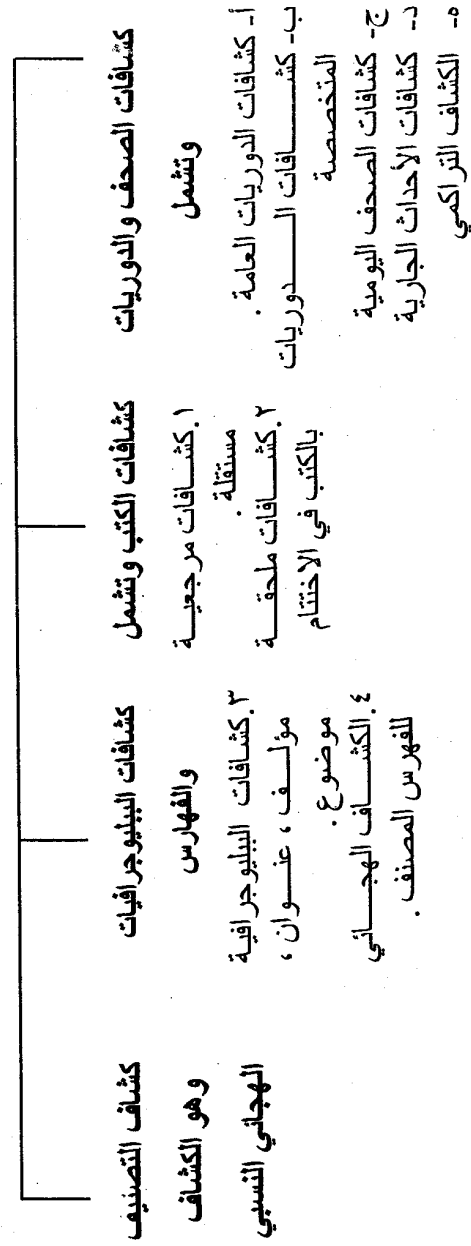 كشافات الصحف والدوريات
وتشمل
أ- كشافات الدوريات العامة .
ب- كشافات الدوريات
المتخصصة
ج- كشافات الصحف اليومية
د- كشافات الأحداث الجارية
ه- الكشاف التراكمي
كشافات الكتب وتشمل
١. كشافات مرجعية
مستقلة .
٢. كشافات ملحقة
بالكتب في الاختتام
كشافات الببليوجرافيات
والفهارس
٣. كشافات الببليوجرافية
مؤلف ، عنوان ،
موضوع .
٤. الكشاف الهجائي
للفهرس المصنف .
كشاف التصنيف
وهو الكشاف
الهجائي النسبي